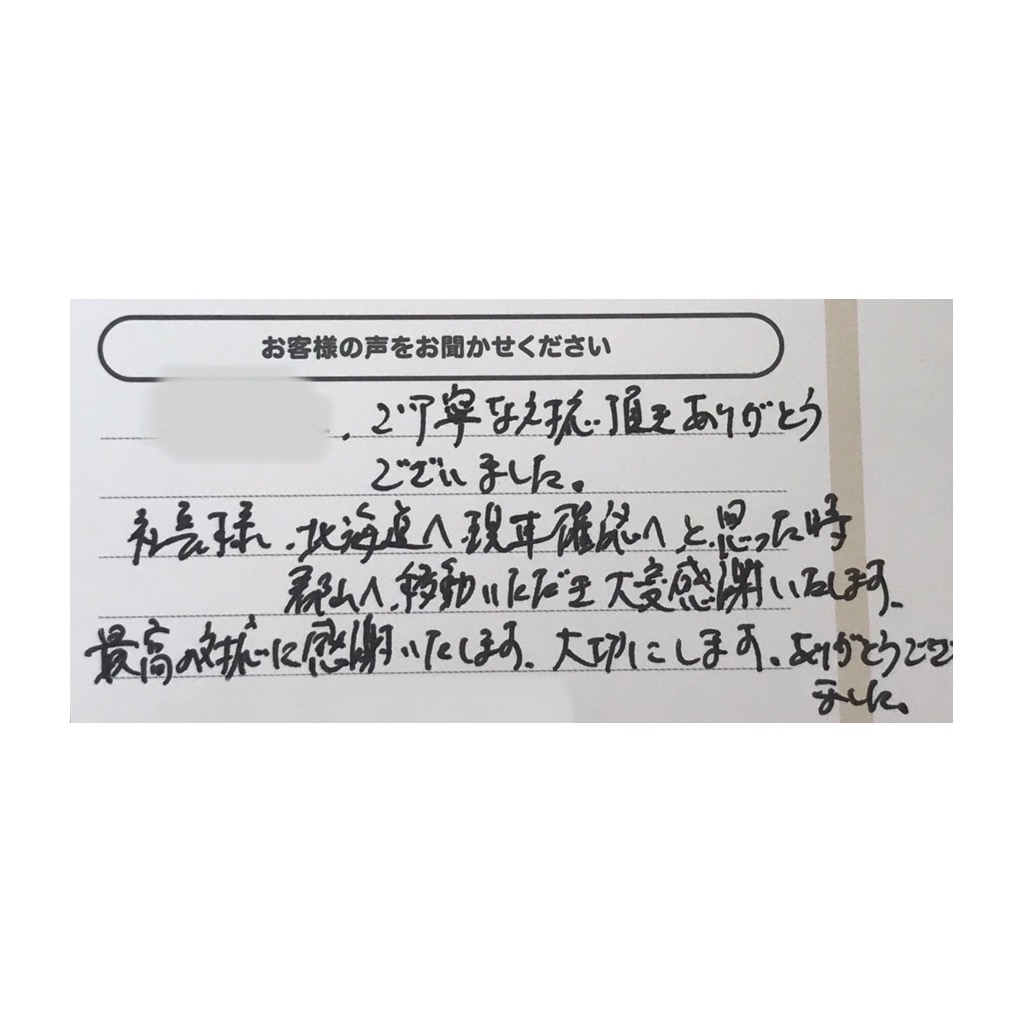 お客様の声をお聞かせください
、ご丁寧な対応頂きありがとう
ございました。
社長様、北海道へ現車確認へと思った時
郡山へ移動いただき大変感謝いたします、
最高の対応に感謝いたします、大切にします、ありがとうござ
ました。